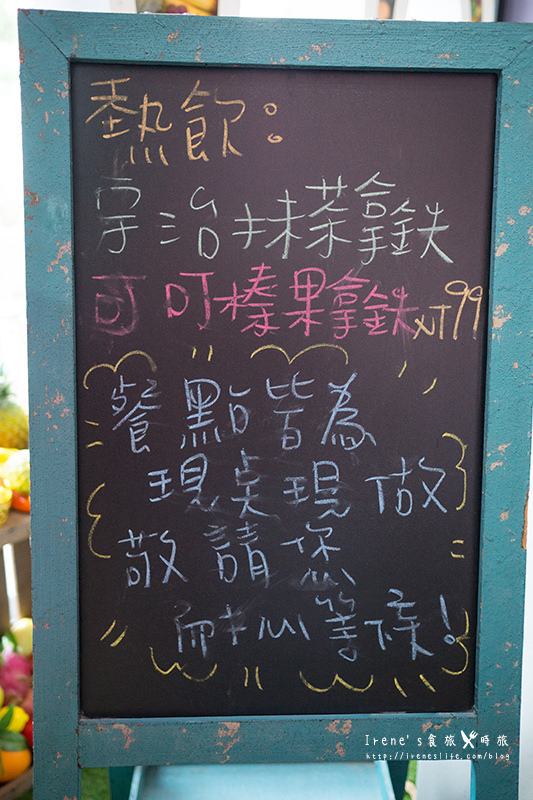 熱飲:
宇治抹茶拿鉄
可可榛果拿鉄 NT99
餐點皆為
現桌現做
敬請您
耐心等候!
Irene's食旅時旅
http://ireneslife.com/blog